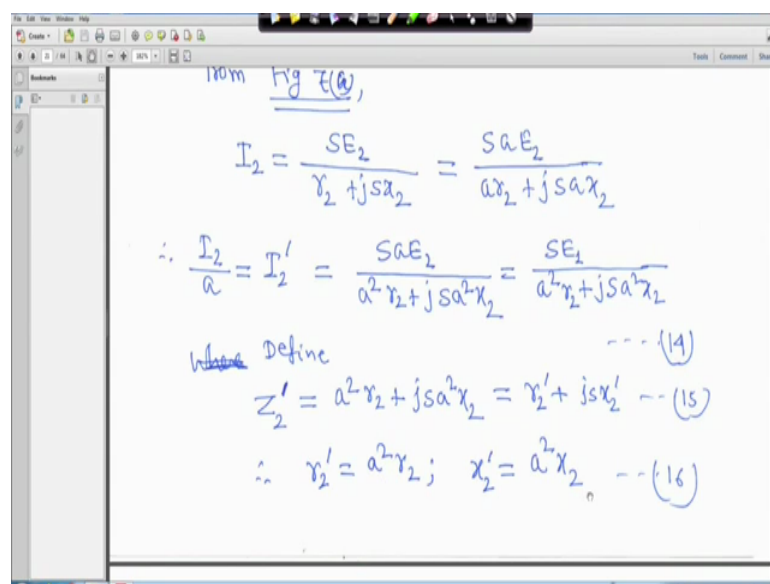 File Edit View Window Help
Create
21 / 44
182%
Tools Comment Share
Bookmarks
from Fig 7(a),
I₂ = SE₂ / (r₂ + jsx₂) = SaE₂ / (ar₂ + jsax₂)
∴ I₂ / a = I₂′ = SaE₂ / (a²r₂ + jsa²x₂) = SE₁ / (a²r₂ + jsa²x₂)
---- (14)
Define
Z₂′ = a²r₂ + jsa²x₂ = r₂′ + jsx₂′ -- (15)
∴ r₂′ = a²r₂; x₂′ = a²x₂ --- (16)